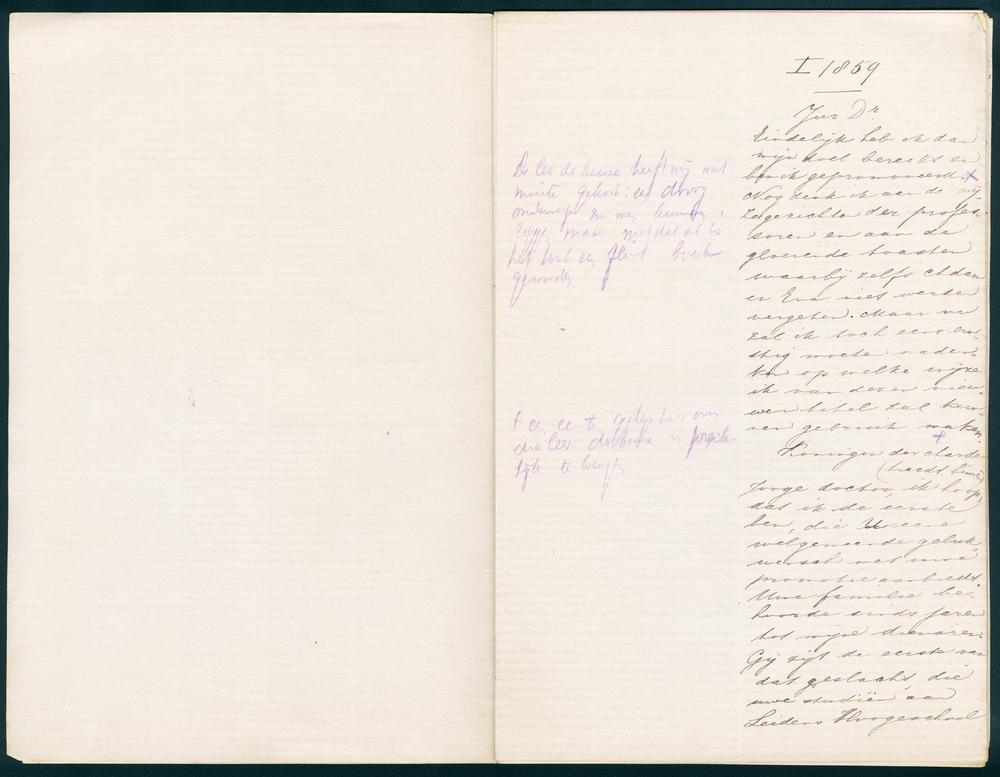 I 1859
Jur Dr
Eindelijk heb ik dan
mijn doel bereikt en
ben ik gepromoveerd. x
Nog denk ik aan de wij-
ze gezichten der profes-
soren en aan de
gloeiende toasten
waarbij zelfs Adam
en Eva niet werden
vergeten. Maar nu
zal ik toch eens ern-
stig moeten naden-
ken op welke wijze
ik van dezen nieu-
wen titel zal kun-
nen gebruik maken.
+
Koningin der aarde
(treedt binnen)
Jonge doctor, ik hoop
dat ik de eerste
ben, die U eene
welgemeende geluk-
wensch met uwe
promotie aanbiedt.
Uwe familie be-
hoorde sinds jaren
tot mijne dienaren.
Gij zijt de eerste van
dat geslacht, die
uwe studiën aan
Leidens Hoogeschool
De keuze heeft mij wat
moeite gekost: een droog
onderwerp
maar met dat al is
het toch een flink boek
geworden
om
die in prach-
tijk te brengen